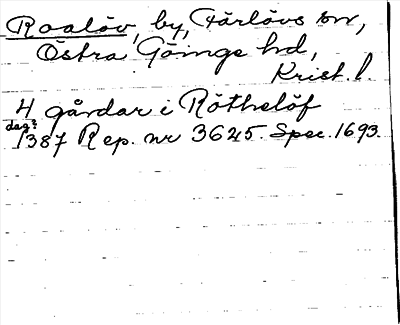 Roalöv, by, Färlövs sn,
Östra Göinge hd,
Krist. l.
4 gårdar i Röthelöf
dag?
1387 Rep. nr 3625. Spec. 1693.